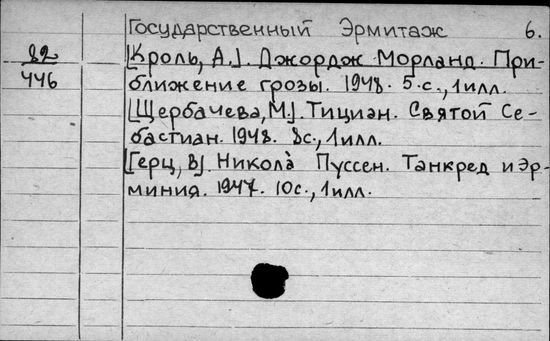 Государственный Эрмитаж 6.
82
446
[Кроль, А.]. Джордж Морланд. При-
ближение грозы. 1948. 5.с., 1илл.
[Щербачева, М.]. Тициан. Святой Се-
бастиан. 1948. 8с., 1илл.
[Герц, В]. Никола Пуссен. Танкред и Эр-
миния. 1947. 10с., 1илл.